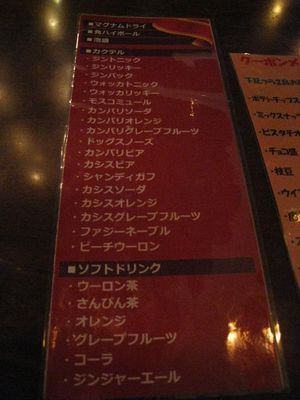 ■マグナムドライ
■角ハイボール
■泡盛
■カクテル
・ジントニック
・ジンリッキー
・ジンバック
・ウォッカトニック
・ウォッカリッキー
・モスコミュール
・カンパリソーダ
・カンパリオレンジ
・カンパリグレープフルーツ
・ドッグスノーズ
・カンパリビア
・カシスビア
・シャンディガフ
・カシスソーダ
・カシスオレンジ
・カシスグレープフルーツ
・ファジーネーブル
・ピーチウーロン
■ソフトドリンク
・ウーロン茶
・さんぴん茶
・オレンジ
・グレープフルーツ
・コーラ
・ジンジャーエール
クーポンメ
・ポテトチップス
・ミックスナッツ
・ピスタチオ
・チョコ
・枝豆
・ウイ